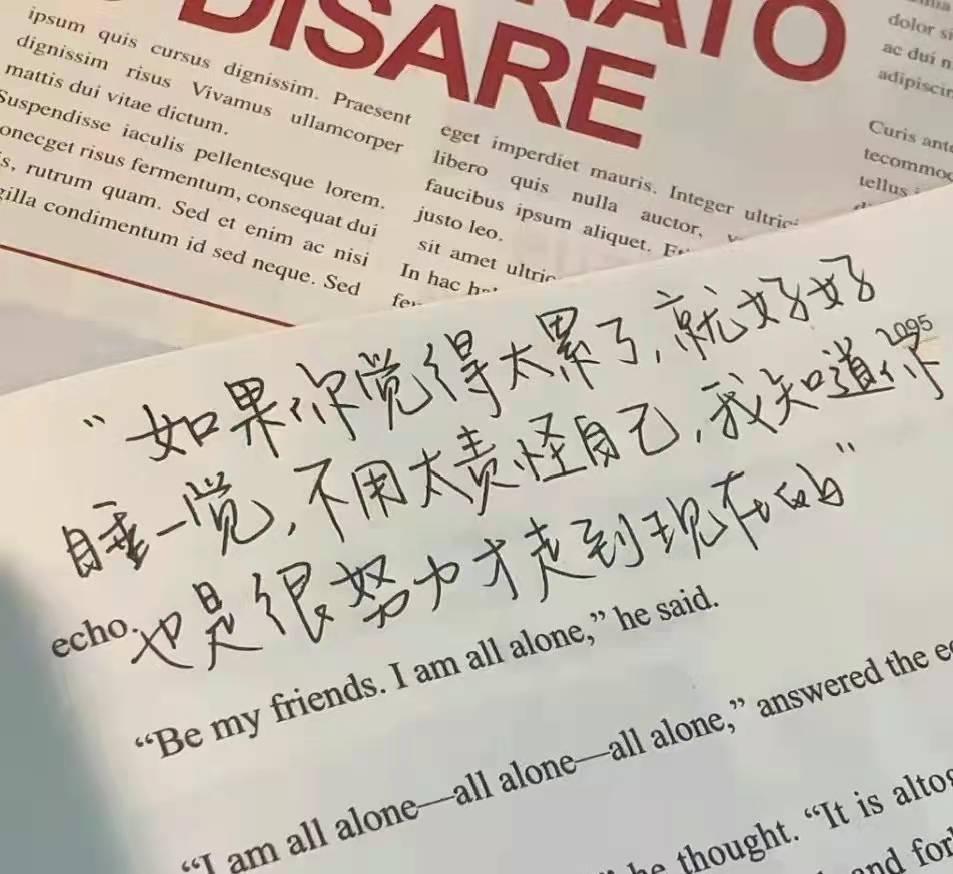 NATO
DISARE
ipsum quis cursus dignissim. Praesent
dignissim risus Vivamus ullamcorper
mattis dui vitae dictum.
Suspendisse iaculis pellentesque lorem.
risus fermentum, consequat dui
rutrum quam. Sed et enim ac nisi
condimentum id sed neque. Sed
eget imperdiet mauris. Integer
libero quis nulla auctor,
faucibus ipsum aliquet.
justo leo.
sit amet
In hac
dolor
ac dui
Curis
tellus
“如果你觉得太累了,就好好
2095
睡一觉,不用太责怪自己,我知道你
也是很努力才走到现在的”
echo.
“Be my friends. I am all alone,” he said.
“I am all alone—all alone—all alone,” answered the
he thought. “It is
and